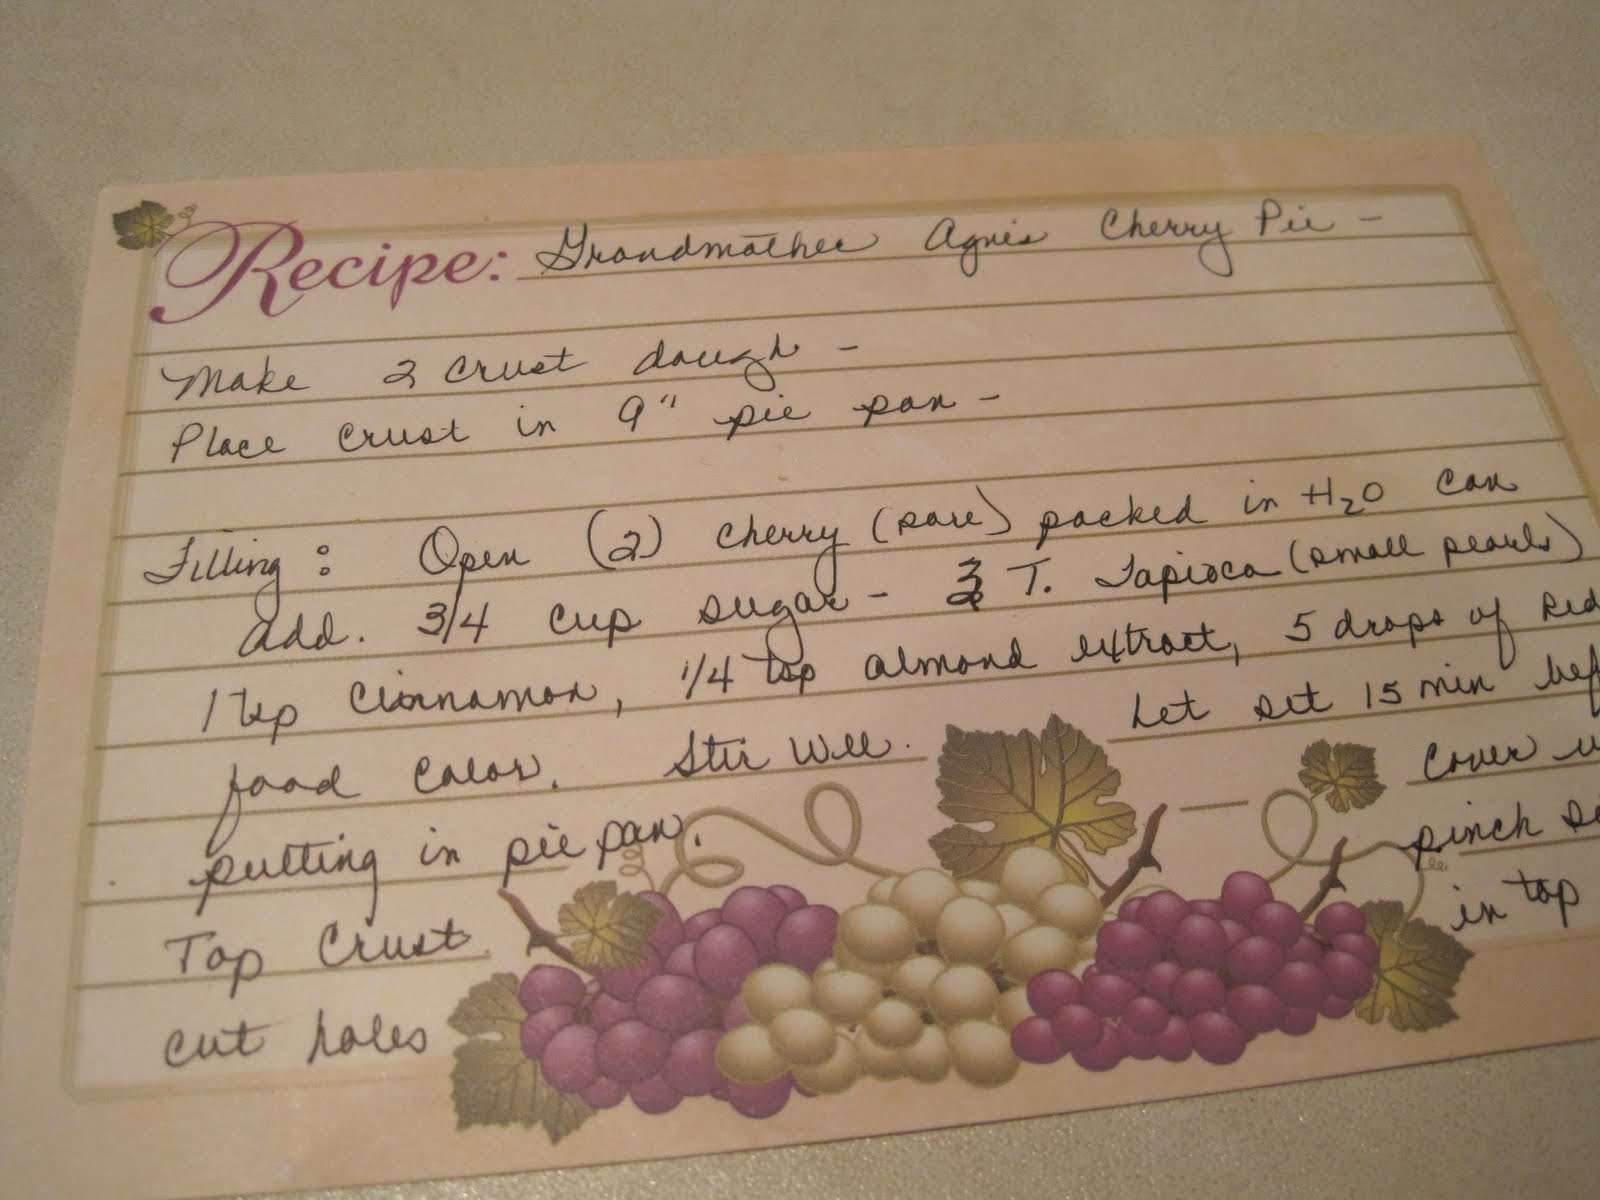 Recipe: Grandmother Agnes Cherry Pie -
Make 2 crust dough -
Place crust in 9" pie pan -
Filling: Open (2) cherry (sour) packed in H2O can
add. 3/4 cup sugar - T. Tapioca (small pearls)
1 tsp Cinnamon, 1/4 tsp almond extract, 5 drops of Red
food color. Stir Well. Let set 15 min bef
putting in pie pan. — Cover w
Top Crust. pinch si
cut holes in top